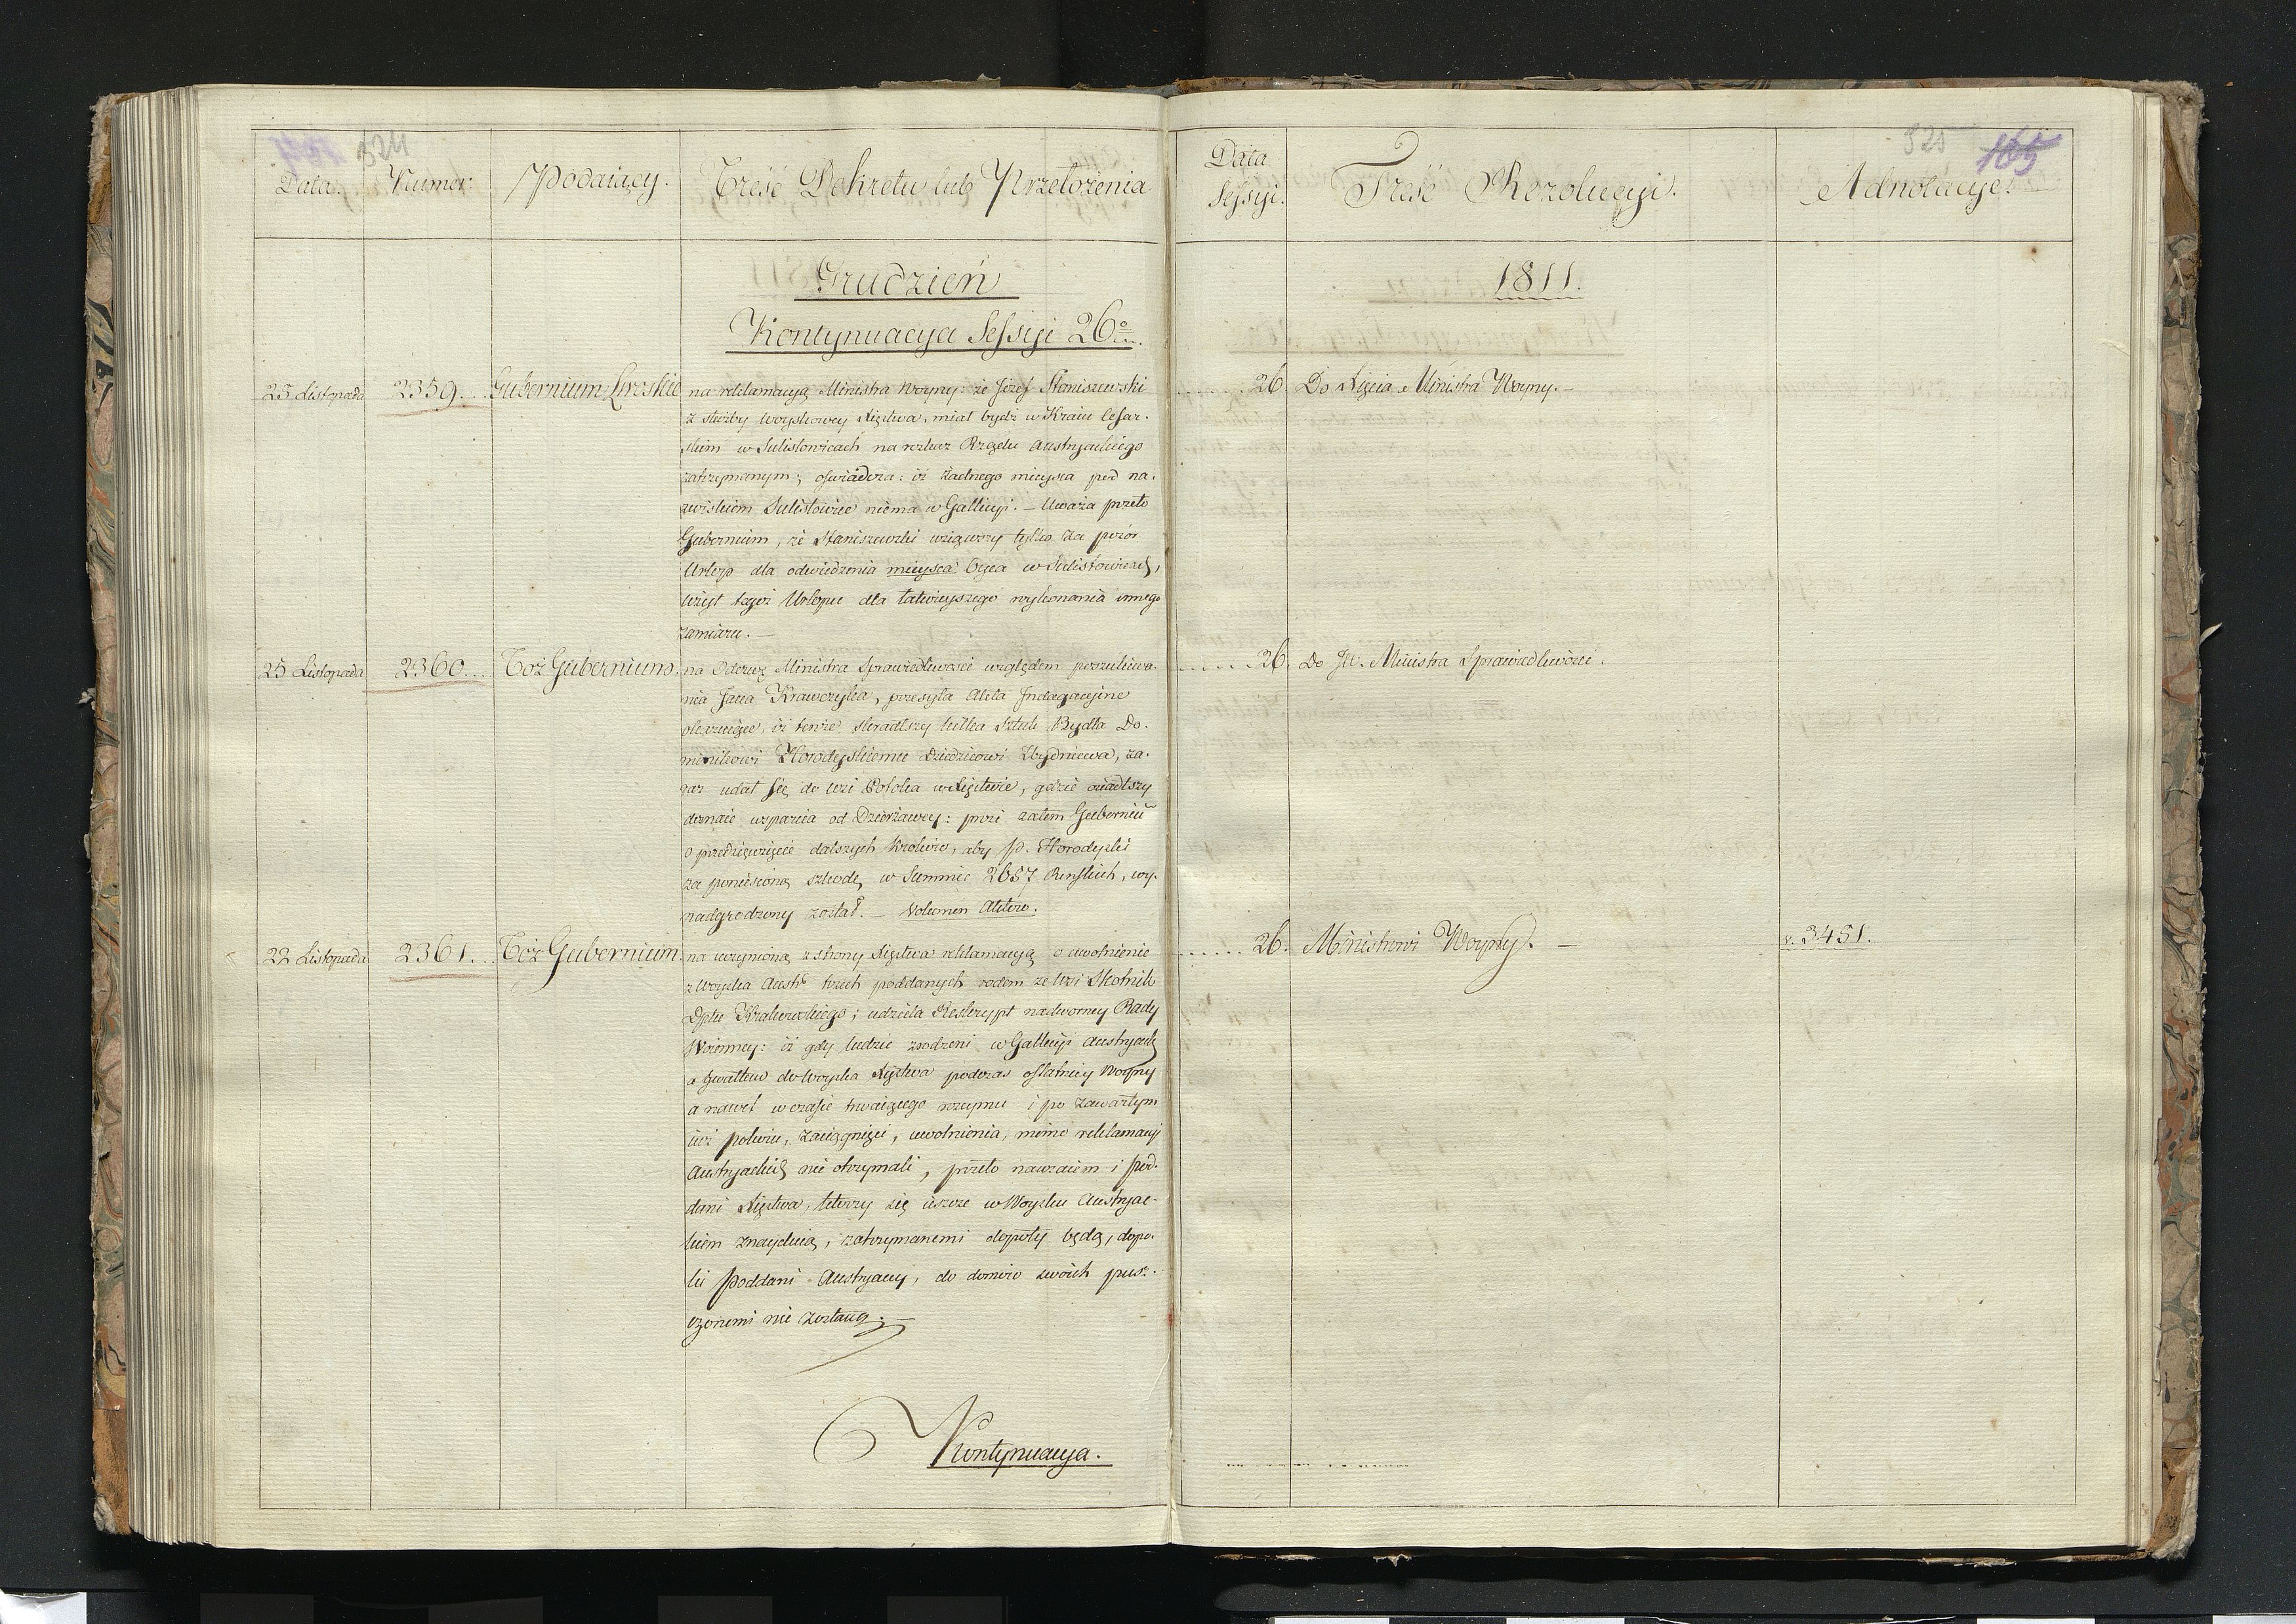 324
Data. Numer. Podaiący. Treść Dekretu lub Przełożenia
Grudzień
Kontynuacya Sessyi 26o
25 Listopada 2359. Gubernium Lwzskie na reklamacyą Ministra Woyny: że Józef Staniszewski
z służby woyskowey Xięstwa, miał bydź w Kraiu Cesar-
skim w Sulisłowicach na rozkaz Rządu Austryackiego
zatrzymanym; oświadcza: iż żadnego mieysca pod na-
zwiskiem Sulisłowice niema w Gallicyi. – Uważa przeto
Gubernium, że Staniszewski wziąwszy tylko za pozór
Urlop dla odwiedzenia mieysca Oyca w Sulisłowicach,
użył tegoż Urlopu dla łatwieyszego wykonania innego
zamiaru. –
25 Listopada 2360. Toż Gubernium, na Odezwę Ministra Sprawiedliwości względem poszukiwa-
nia Jana Krawczyka, przesyła Akta Indagacyine
okazuiące, iż tenże skradłszy kilka sztuk Bydła Do-
minikowi Horodyskiemu Dziedzicowi Zbydniewa, za-
raz udał się do wsi w Xięstwie, gdzie osiadłszy
doznaie wsparcia od Dzierżawcy: prosi zatem Guberniū
o przedsięwzięcie dalszych kroków, aby P. Horodyski
za poniesioną szkodę w Summie 2687 Reńskich, wy-
nadgrodzony został. – Volumen Aktów.
22 Listopada 2361. Toż Gubernium na uczynioną z strony Xięstwa reklamacyą o uwolnienie
z Woyska Austr. trzech poddanych rodem ze Wsi Skotnik
Dptu Krakowskiego; udziela Reskrypt nadworney Rady
Woienney: iż gdy ludzie zrodzeni w Gallicyi Austryack
a gwałtem do Woyska Xięstwa podczas ostatniey Woyny
a nawet w czasie trwaiącego rozeymu i po zawartym
iuż pokoiu, zaciągnięci, uwolnienia, mimo reklamacyi
Austryackich nie otrzymali, przeto nawzaiem i pod-
dani Xięstwa, którzy się ieszcze w Woysku Austryac-
kiem znayduią, zatrzymanemi dopóty będą, dopó-
ki poddani Austryaccy, do domów swoich pusz-
czonemi nie zostaną. –
Kontynuacya.
325 165
Data Sessyi. Treść Rezolucyi. Adnotacye.
1811.
26. Do Xięcia Ministra Woyny. –
26. Do JW. Ministra Sprawiedliwości.
26. Ministrowi Woyny. – v. 3451.